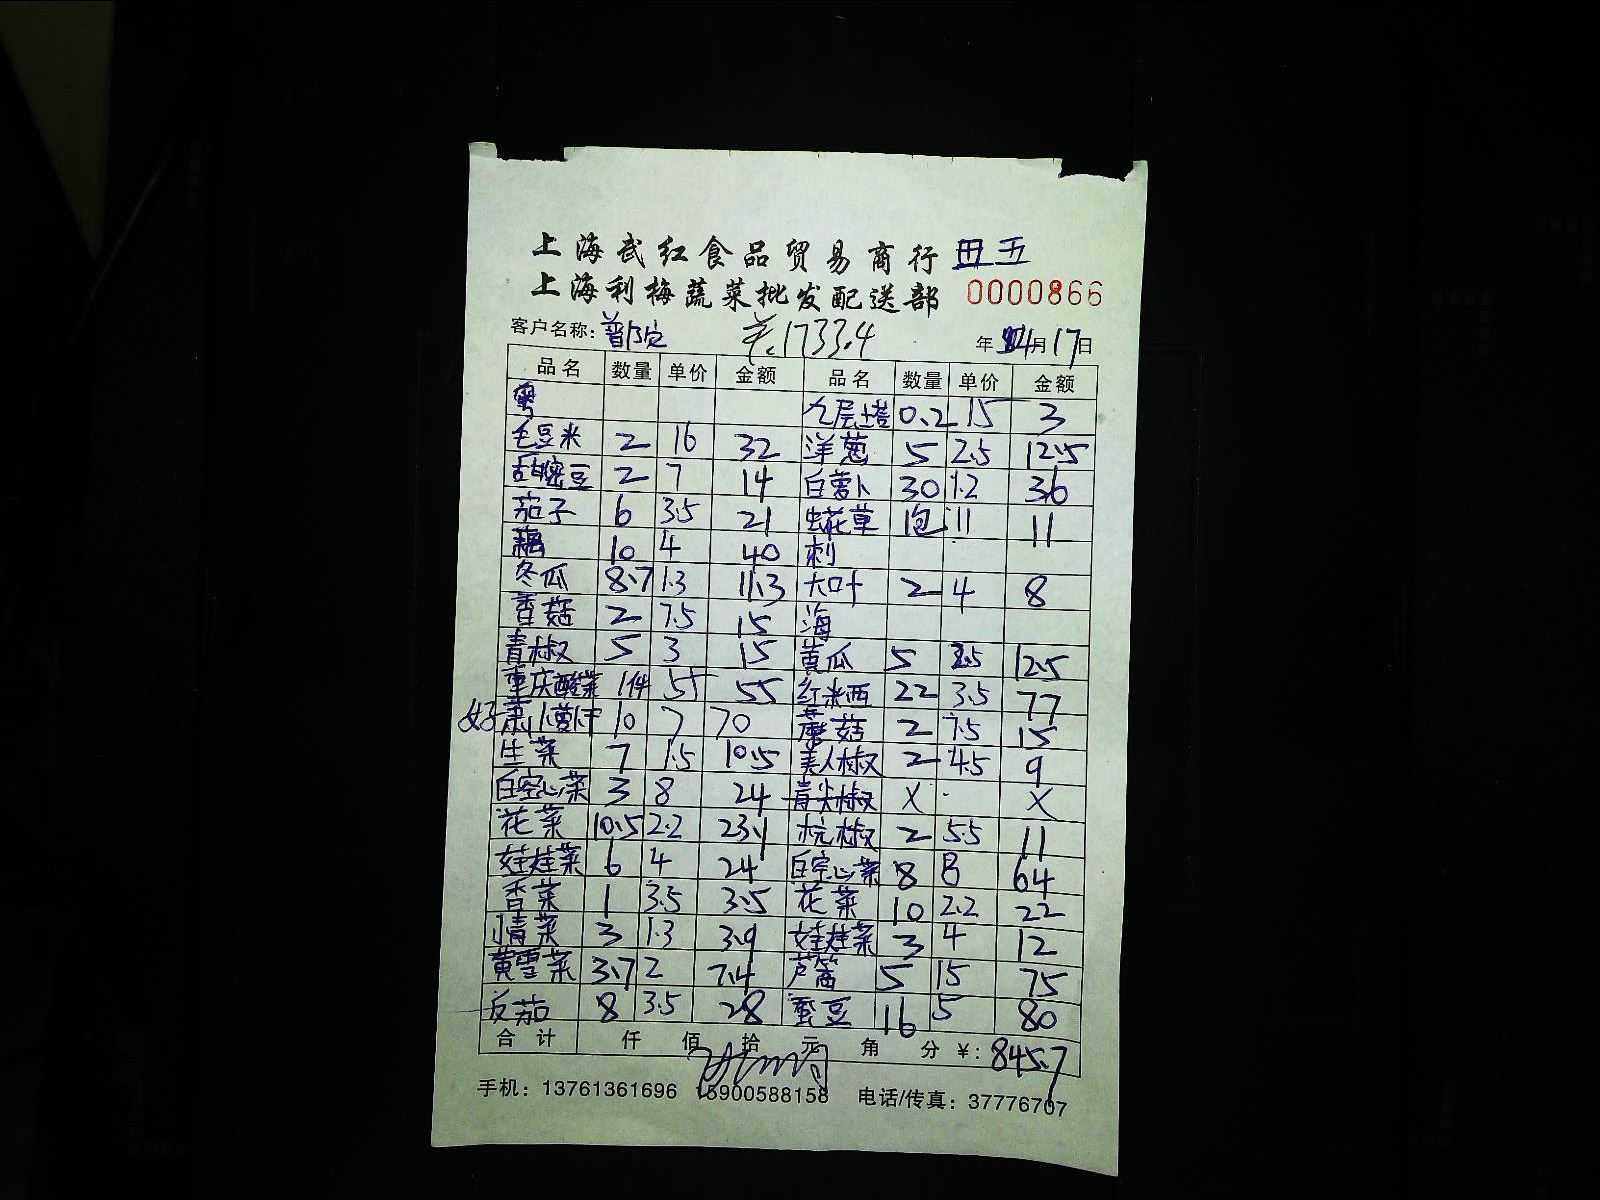 上海武红食品贸易商行 田五
上海利梅蔬菜批发配送部 0000866
客户名称: 1733.4 年 4月17日
品名 数量 单价 金额 品名 数量 单价 金额
粤 九层塔 0.2 15 3
毛豆米 2 16 32 洋葱 5 2.5 12.5
甜蜜豆 2 7 14 白萝卜 30 1.2 36
茄子 6 3.5 21 虫花草 1包 11 11
藕 10 4 40 刺
冬瓜 8.7 1.3 11.3 大叶 2 4 8
香菇 2 7.5 15 海
青椒 5 3 15 黄瓜 5 2.5 12.5
重庆酸菜 1件 55 55 红米西 22 3.5 77
好 萧小萝卜干 10 7 70 蘑菇 2 7.5 15
生菜 7 1.5 10.5 美人椒 2 4.5 9
白空心菜 3 8 24 青尖椒 X X
花菜 10.5 2.2 23.1 杭椒 2 5.5 11
娃娃菜 6 4 24 白空心菜 8 8 64
香菜 1 3.5 3.5 花菜 10 2.2 22
青菜 3 1.3 3.9 娃娃菜 3 4 12
黄雪菜 3.7 2 7.4 芦蒿 5 15 75
反茄 8 3.5 28 蚕豆 16 5 80
合计 仟 佰 拾 元 角 分 ¥: 845.7
手机: 13761361696 15900588158 电话/传真: 37776707